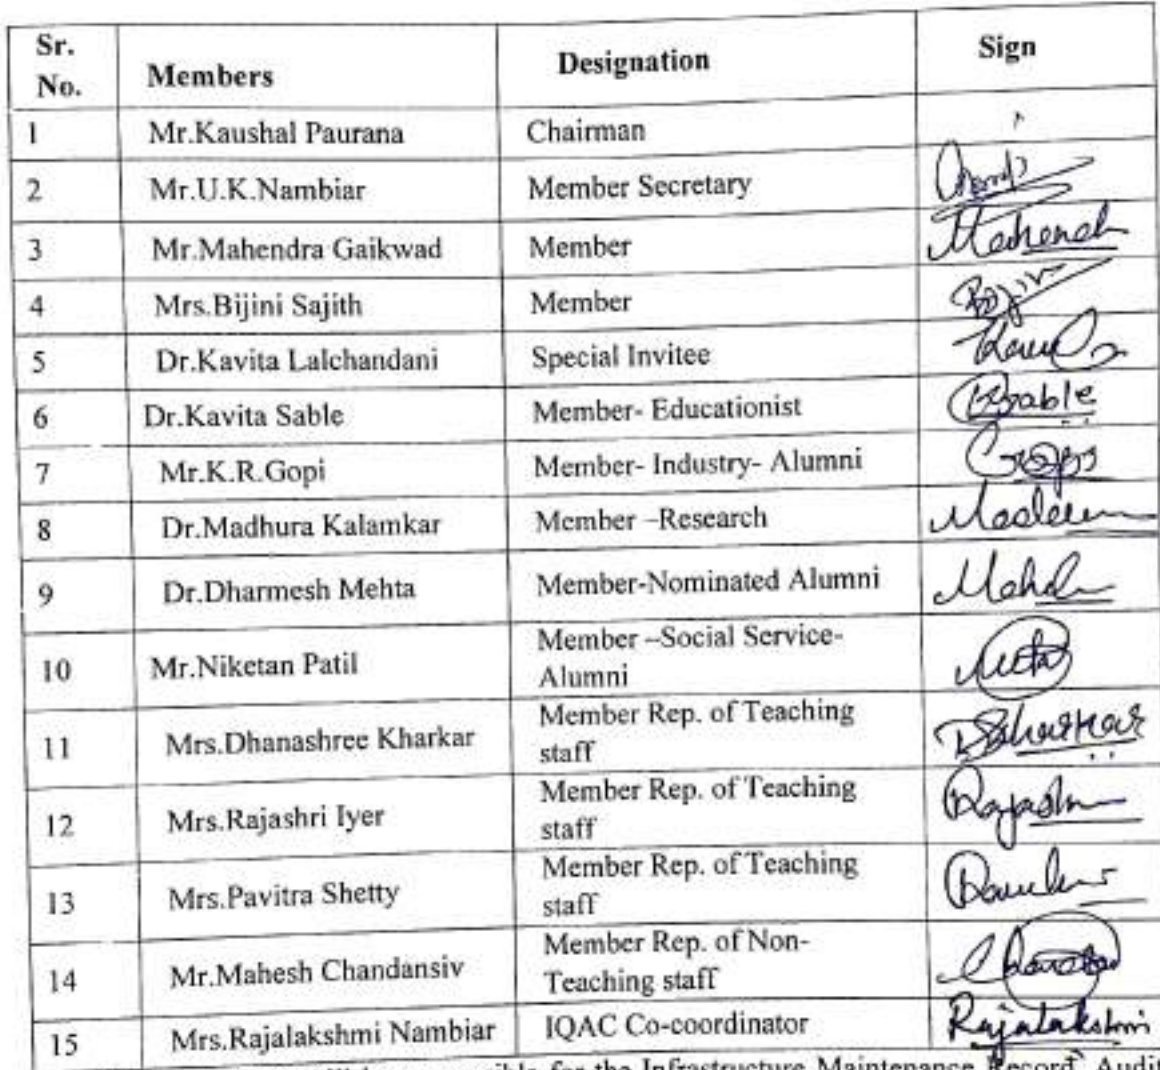 Sr. No. Members Designation Sign
1 Mr.Kaushal Paurana Chairman
2 Mr.U.K.Nambiar Member Secretary
3 Mr.Mahendra Gaikwad Member
4 Mrs.Bijini Sajith Member
5 Dr.Kavita Lalchandani Special Invitee
6 Dr.Kavita Sable Member- Educationist
7 Mr.K.R.Gopi Member- Industry- Alumni
8 Dr.Madhura Kalamkar Member –Research
9 Dr.Dharmesh Mehta Member-Nominated Alumni
10 Mr.Niketan Patil Member –Social Service-
Alumni
11 Mrs.Dhanashree Kharkar Member Rep. of Teaching
staff
12 Mrs.Rajashri Iyer Member Rep. of Teaching
staff
13 Mrs.Pavitra Shetty Member Rep. of Teaching
staff
14 Mr.Mahesh Chandansiv Member Rep. of Non-
Teaching staff
15 Mrs.Rajalakshmi Nambiar IQAC Co-coordinator Rajalakshmi
for the Infrastructure Maintenance Record, Audit